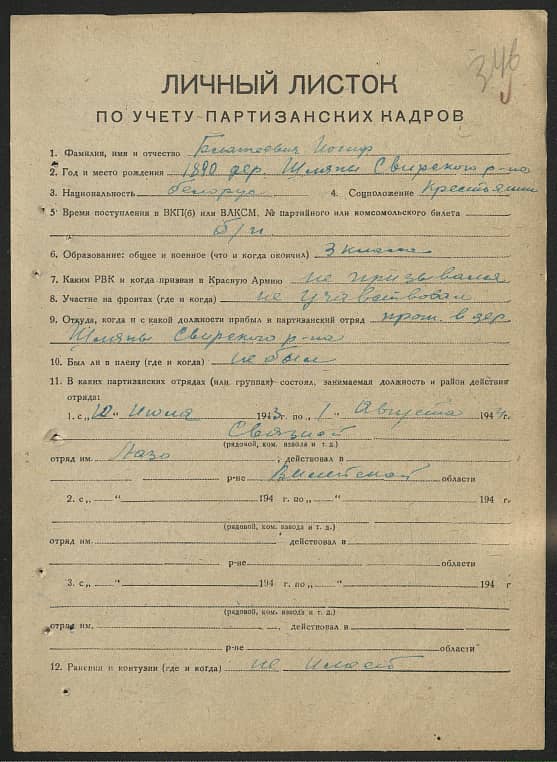 346
ЛИЧНЫЙ ЛИСТОК
ПО УЧЕТУ ПАРТИЗАНСКИХ КАДРОВ
1. Фамилия, имя и отчество Иосиф
2. Год и место рождения 1890 дер. Шляпы Свирского р-на
3. Национальность белорус 4. Соцположение Крестьянин
5. Время поступления в ВКП(б) или ВЛКСМ, № партийного или комсомольского билета
б/п
6. Образование: общее и военное (что и когда окончил) 3 класса
7. Каким РВК и когда призван в Красную Армию не призывался
8. Участие на фронтах (где и когда) не участвовал
9. Откуда, когда и с какой должности прибыл в партизанский отряд прож. в дер
Шляпы Свирского р-на
10. Был ли в плену (где и когда) не был
11. В каких партизанских отрядах (или группах) состоял, занимаемая должность и район действия
отряда:
1. с „10“ Июля 1943 г. по „1“ Августа 1944 г.
Связной
(рядовой, ком. взвода и т. д.)
отряд им. Лазо, действовал в
р-не Вилейской области
2. с „ “ 194 г. по „ “ 194 г.
(рядовой, ком. взвода и т. д.)
отряд им. действовал в
р-не области
3. с „ “ 194 г. по „ “ 194 г
(рядовой, ком. взвода и т. д.)
отряд им. , действовал в
р-не области
12. Ранения и контузии (где и когда) не имеет